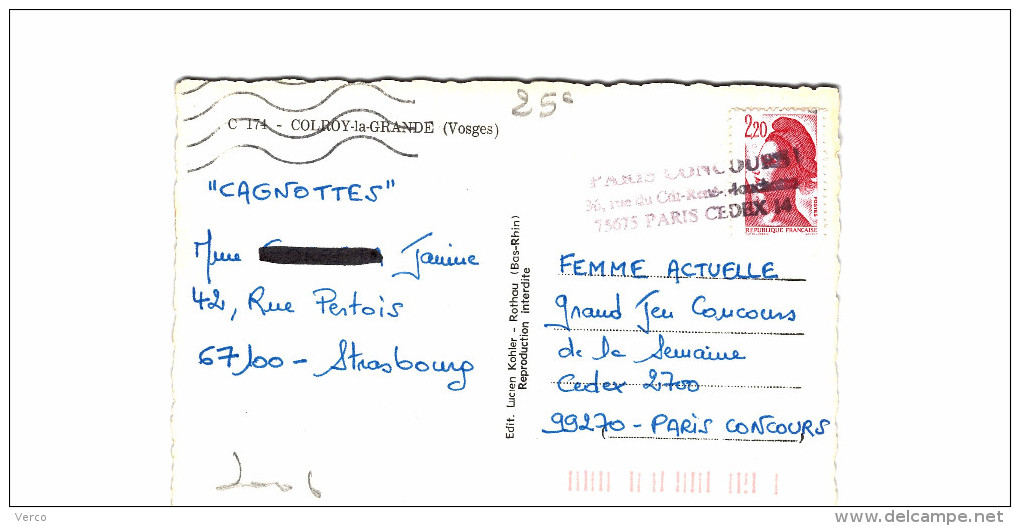 25c
C 174 - COLROY-la-GRANDE (Vosges)
2,20
POSTES
REPUBLIQUE FRANÇAISE
PARIS CONCOURS
36, rue du Cdt-René
75675 PARIS CEDEX 14
"CAGNOTTES"
Mme Janine
42, Rue Pertois
67100 - Strasbourg
Edit. Lucien Kohler - Rothau (Bas-Rhin)
Reproduction interdite
FEMME ACTUELLE
Grand Jeu Concours
de la Semaine
Cedex 2700
99270 - PARIS CONCOURS
Verco
www.delcampe.net